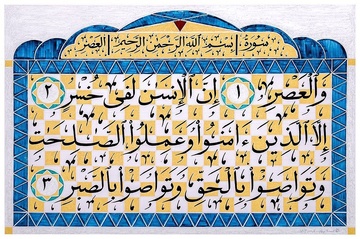 سورة بسم الله الرحمن الرحيم العصر
والعصر ١ إن الإنسن لفى خسر ٢
إلا الذين ءامنوا وعملوا الصلحت
وتواصوا بالحق وتواصوا بالصبر ٣